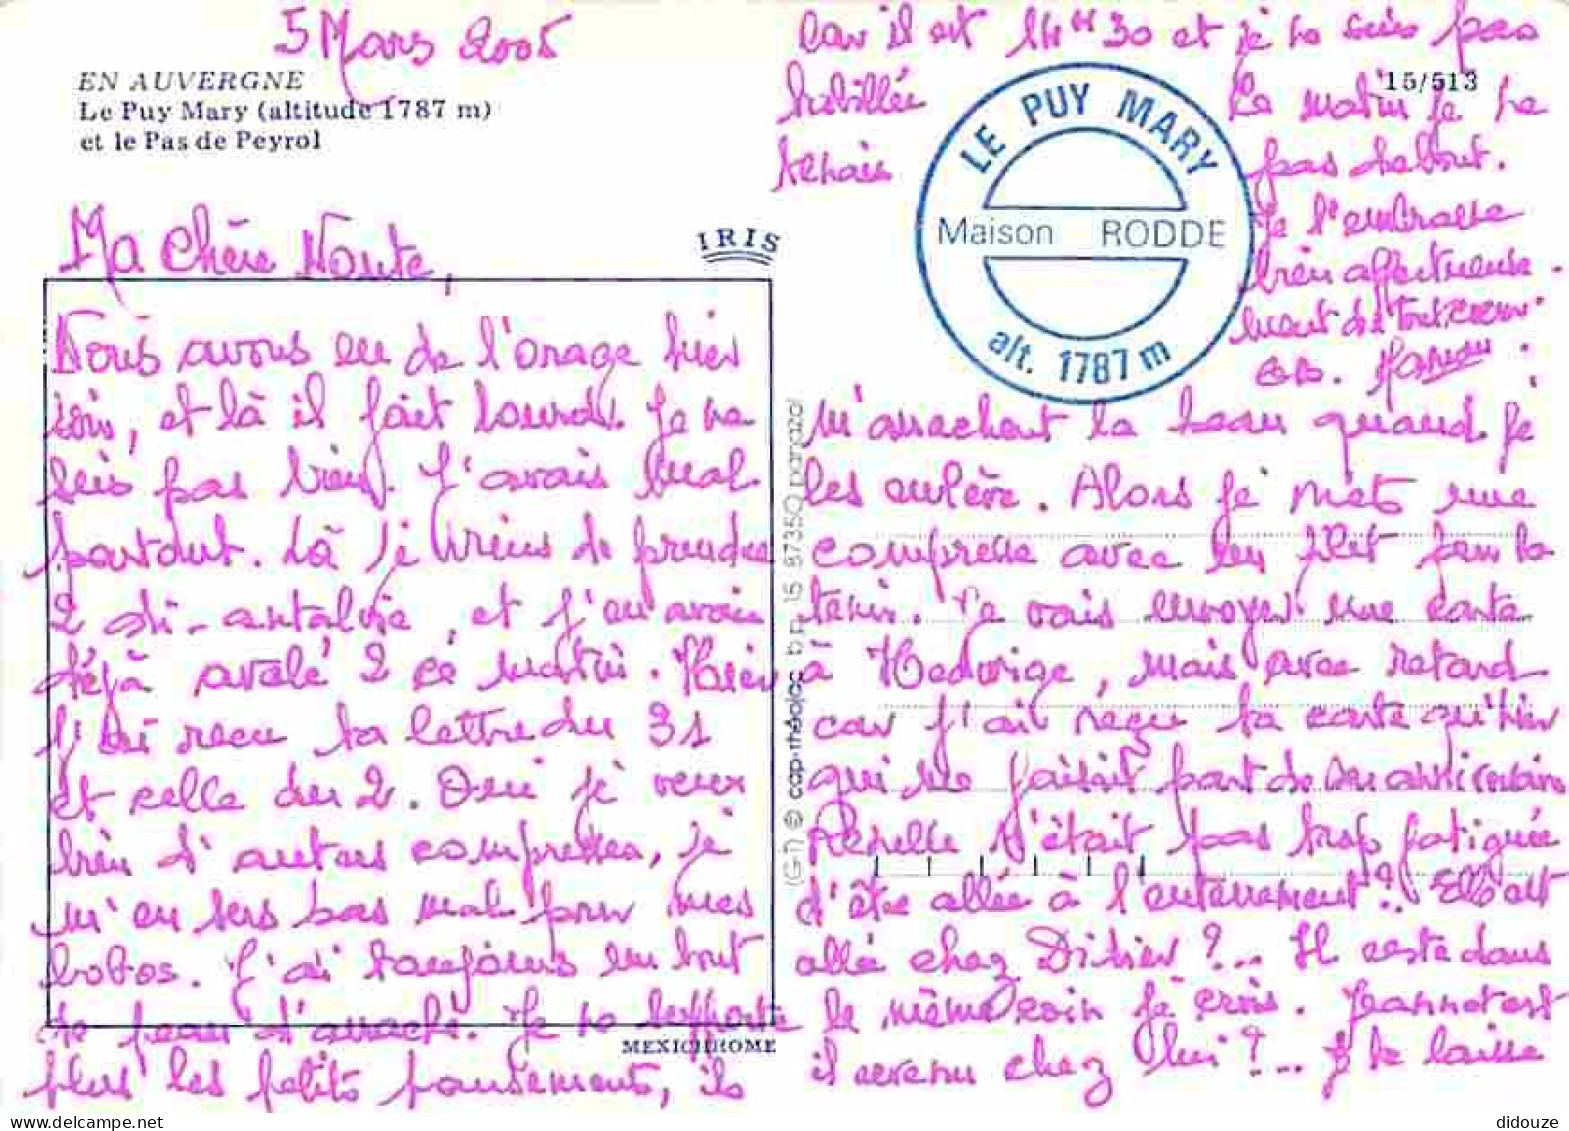 5 Mars 2005
EN AUVERGNE
Le Puy Mary (altitude 1787 m)
et le Pas de Peyrol
IRIS
Ma Chère Noute,
Nous avons eu de l'orage hier
soir, et là il fait lourd. Je ne
suis pas bien. J'avais mal
partout. Là je viens de prendre
2 di-antalvic, et j'en avais
déjà avalé 2 ce matin. Hier
j'ai reçu ta lettre du 31
et celle du 2. Oui je veux
bien d'autres compresses, je
m'en sers pas mal pour mes
bobos. J'ai toujours un bout
de peau d'arraché. Je ne supporte
plus les petits pansements, ils
MEXICHROME
(G-1) © cap-théojac b.n. 15 87350 panazol
m'arrachent la peau quand je
les enlève. Alors je mets une
compresse avec un filet pour la
tenir. Je vais envoyer une carte
à Hedwige, mais avec retard
car j'ai reçu ta carte qu'hier
qui me faisait part de son anniversaire
n'était pas trop fatiguée
d'être allée à l'enterrement ? Elle est
allée chez Didier ?... Il reste dans
le même coin je crois. Jeannot est
il revenu chez lui ?... Je te laisse
car il est 14H30 et je ne suis pas
habillée
Ce matin je ne
tenais
pas debout.
Je t'embrasse
bien affectueuse-
ment de tout coeur
15/513
LE PUY MARY
Maison RODDE
alt. 1787 m
didouze
delcampe.net